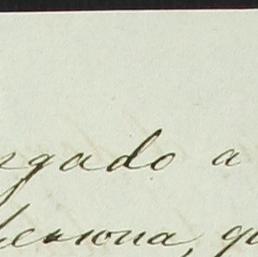 gado a
persona, qu